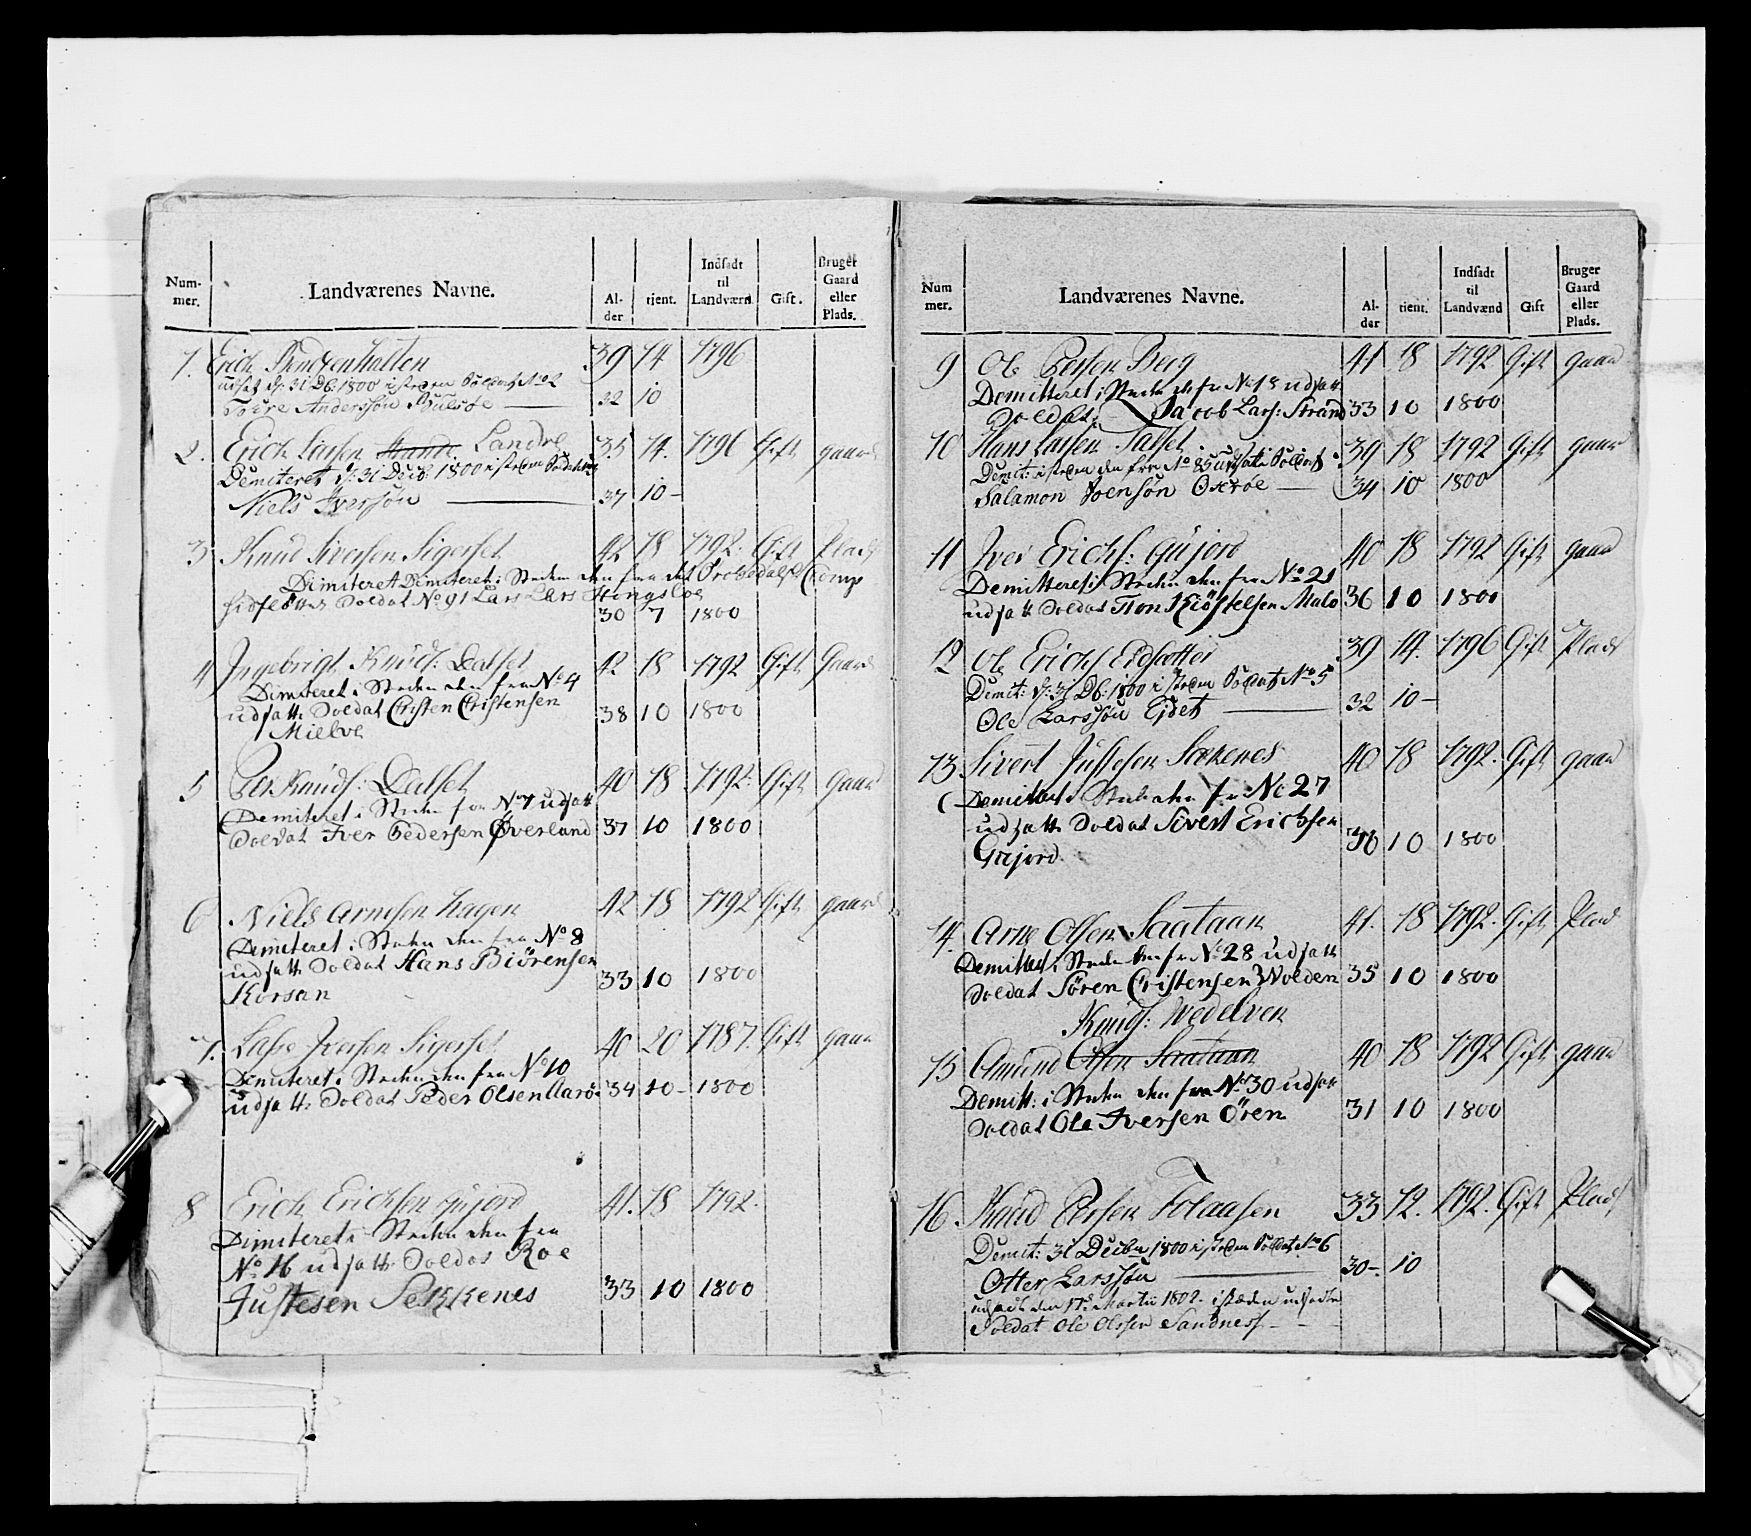 Num-
mer.
Landværenes Navne.
Al-
der
tient.
Indsadt
til
Landværn.
Gift.
Bruger
Gaard
eller
Plads.
1. Erich 39 14 1796
udsat d: 31 Db: 1800 i steden Soldat No 2
Tosre Anderssøn 32 10
2. Erich Larsen Landre 35 14. 1796 Gift gaard
Demiteret d: 31 Decb: 1800 i steden
Niels Iverssøn 37 10-
3 Knud Siversen Sigerset 42 18 1792. Gift Plads
Dimiteret Demiteret i Steden den fra det Comp
Soldat No 91 Lars Lars
30 7 1800
4 Ingebrigt Knuds: Dalset 42 18 1792 Gift Gaard
Dimiteret i Steden den fra No 4
udsatte Soldat Cristen Cristensen 38 10 1800
Mielve
5 Per Knuds: Dalset 40 18 1792. Gift Gaard
Demiteret i Steden fra No 7 udsatt
Soldat Iver Pedersen Øverland 37 10 1800
6 Niels Arnesen Hagen 42 18 1792 Gift gaard
Demiteret i Steden den fra No 8
udsatte Soldat Hans Biørensen 33 10 1800
Korsan
7. Lasse Iversen Sigerset 40 20 1787. Gift gaard
Demiteret i Steden den fra No 10
udsatte Soldat Peder Olsen Aarø 34 10- 1800
8 Erich Erichsen Gujord 41. 18 1792.
Dimiteret i Steden den fra
No 16 udsatte Soldat Roe
Justesen Sekkenes 33 10 1800
Num
mer.
Landværenes Navne.
Al-
der
tient.
Indsadt
til
Landværnd
Gift
Bruger
Gaard
eller
Plads.
9 Ole Persen Berg 41 18 1792 Gift gaard
Demitteret i Steden den fra No 18 udsatt
Soldat Jacob Lars: Strand 33 10 1800
10 Hans Larsen Talset 39 18 1792 Gift gaard
Demit: i steden den fra No 85 udsatte Soldat
Salamon Joensøn Oterøe 34 10 1800
11 Iver Erichs: Gujord 40 18 1792 Gift gaard
Demitteret i Steden den fra No 21
udsatt Soldat Malo 36 10 1800
12 Ole Erichs Eidsætter 39 14. 1796 Gift Plads
Demit: d: 31 Db: 1800 i steden Soldat No 5
Ole Larssøn Eidet 32 10-
13 Sivert Justesen Sækenes 40 18 1792. Gift gaard
Demitteret i Steden den fra No 27
udsatte Soldat Sivert Erichsen
Gujord 30 10 1800
14. Arne Olsen Saataan 41. 18 1792. Gift Plads
Demitteret i Steden den fra No 28 udsatte
Soldat Sören Cristensen Wolden 35 10 1800
Knuds: Wedelven
15 Amund Olsen Saataan 40 18 1792 Gift gaard
Demitt: i Steden den fra No 30 udsatte
Soldat Ole Iversen Ören 31 10 1800
16 Knud Persen Folaasen 33 12. 1792. Gift Plads
Demit: 31 Decbr 1800 i steden Soldat No 6
Otter Larssøn 30-. 10
udsadt den 17d Martii 1802. i stæden udsadte
Soldat Ole Olssen Sandnes